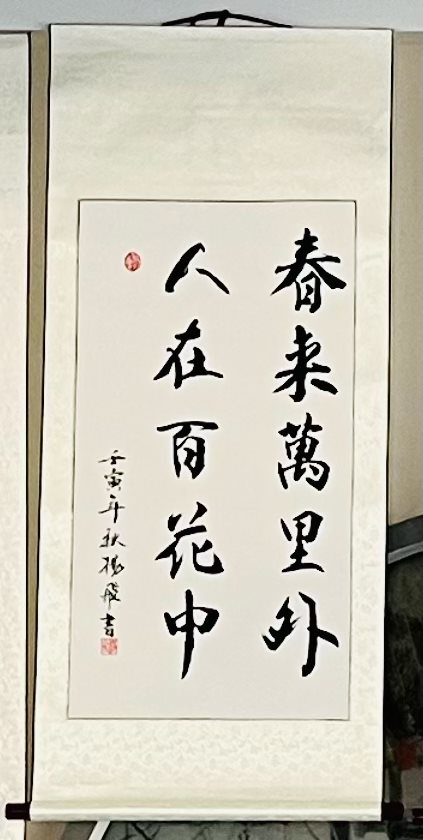 春来萬里外
人在百花中
壬寅年秋杨飛书